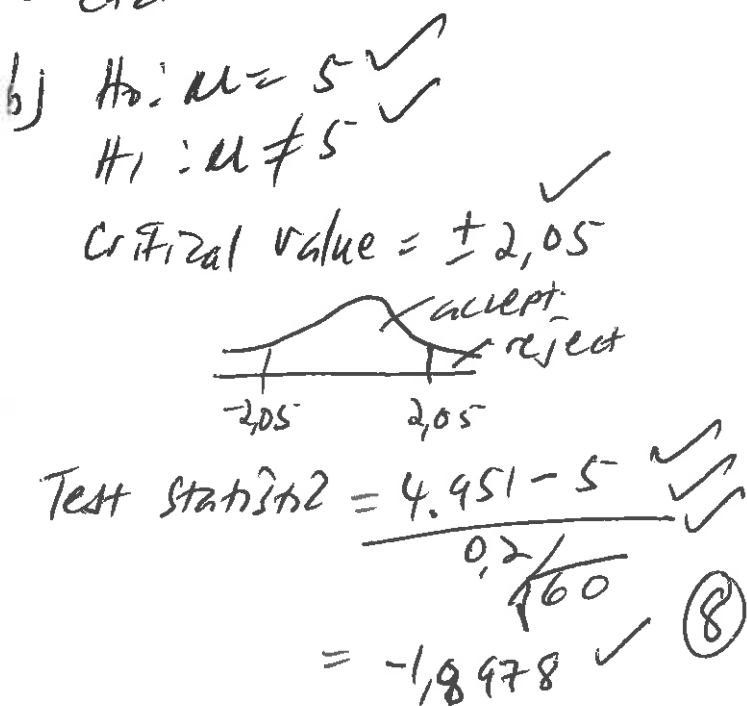 b) H₀: μ = 5 ✓
H₁: μ ≠ 5 ✓
Critical value = ± 2,05 ✓
accept
reject
-2,05 2,05
Test Statistic = 4.951 - 5 ✓✓✓
0,2/√60
= -1,8978 ✓ ⑧